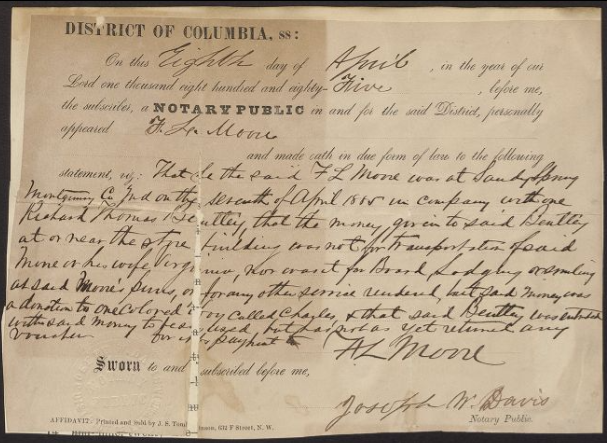 DISTRICT OF COLUMBIA, ss:
On this Eighth day of April, in the year of our
Lord one thousand eight hundred and eighty-Five, before me,
the subscriber, a NOTARY PUBLIC in and for the said District, personally
appeared F. L. Moore
and made oath in due form of law to the following
statement, viz: That he the said F L Moore was at Sandy Spring
Montgomery Co Md on the seventh of April 1885 in company with one
Richard Thomas Bentley, that the money given to said Bentley
at or near the store building was not for transportation of said
Moore or his wife, Virginia, nor was it for Board Lodging or
at said Moore's, or for any other service rendered, but said money was
a donation to one colored boy called Charles, & that said Bentley was entrusted
with said money to used, but has not as yet returned any
voucher for payment
F L Moore
Sworn to and subscribed before me,
Joseph W. Davis
Notary Public.
AFFIDAVIT: Printed and Sold by J. S. 632 F Street, N. W.